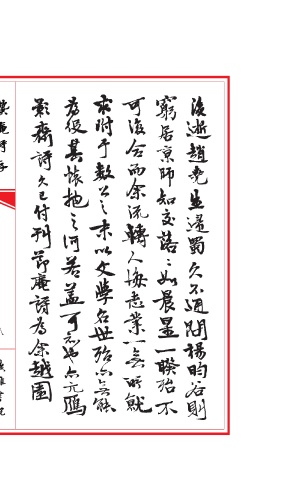 淹逝趙堯生還蜀久不通問楊昀谷則
窮居京師知交落々如晨星一暌殆不
可復合而余流轉人海志業一無所就
求附于數公之末以文學名世殆亦無能
為役其慨抱之何若蓋可知也亦元鴈
影齋詩久已付刊節庵詩為余越園